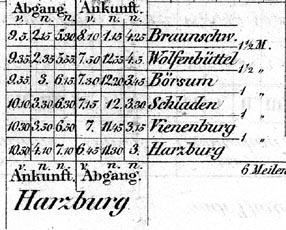 Abgang. Ankunft.
v. n. n. v. n. n.
9.5. 2.15 5.30 8.10 1.15 4.25 Braunschw.
1½ M.
9.35 2.35 5.55 7.50 12.55 4.5 Wolfenbüttel
1½ „
9.55 3. 6.15 7.30 12.20 3.45 Börsum
1 „
10.10 3.30 6.30 7.15 12. 3.30 Schladen
1 „
10.30 3.50 6.50 7. 11.45 3.15 Vienenburg
1 „
10.50 4.10 7.10 6.45 11.30 3. Harzburg
v. n. n. v. v. n.
Ankunft. Abgang. 6 Meilen
Harzburg